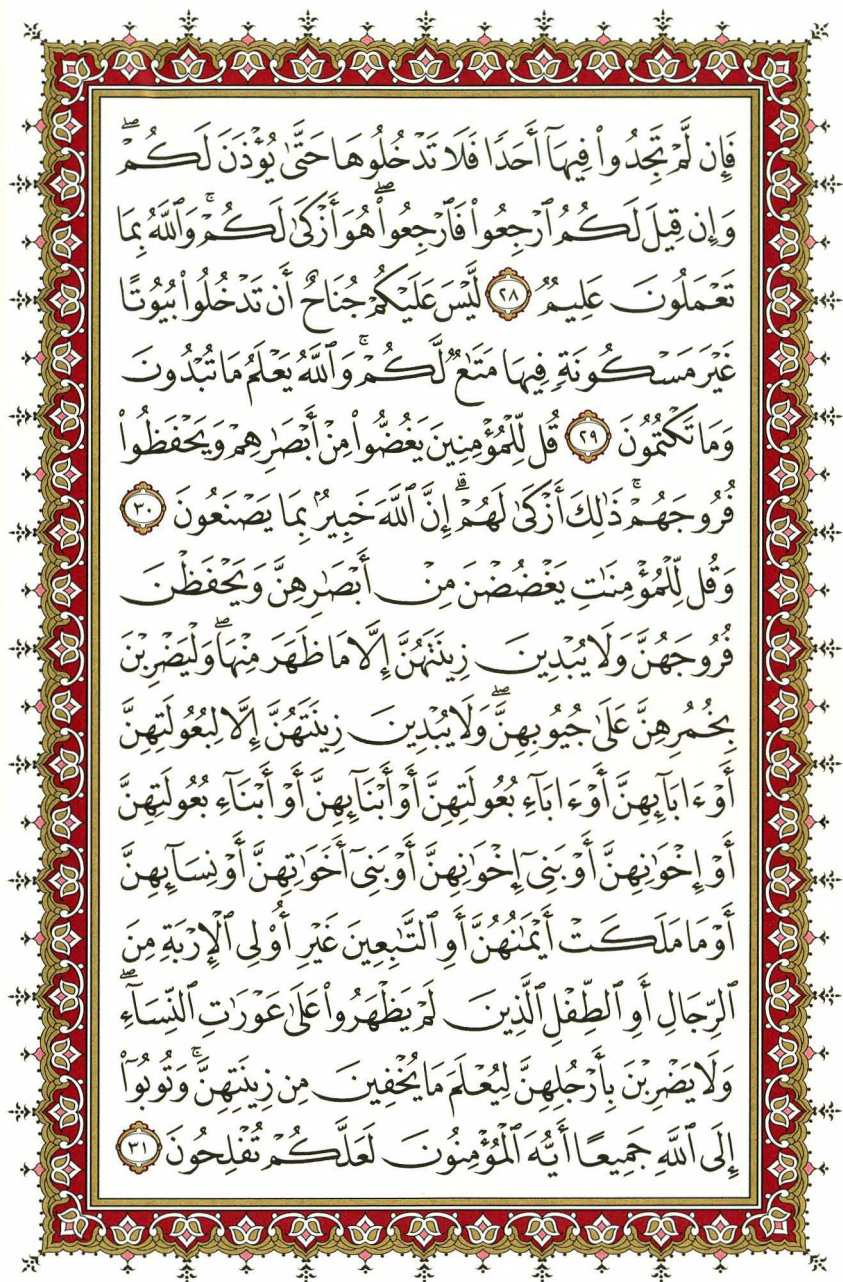 فَإِن لَّمْ تَجِدُوا۟ فِيهَآ أَحَدًۭا فَلَا تَدْخُلُوهَا حَتَّىٰ يُؤْذَنَ لَكُمْ ۖ
وَإِن قِيلَ لَكُمُ ٱرْجِعُوا۟ فَٱرْجِعُوا۟ ۖ هُوَ أَزْكَىٰ لَكُمْ ۚ وَٱللَّهُ بِمَا
تَعْمَلُونَ عَلِيمٌۭ ﴿٢٨﴾ لَّيْسَ عَلَيْكُمْ جُنَاحٌ أَن تَدْخُلُوا۟ بُيُوتًا
غَيْرَ مَسْكُونَةٍۢ فِيهَا مَتَٰعٌۭ لَّكُمْ ۚ وَٱللَّهُ يَعْلَمُ مَا تُبْدُونَ
وَمَا تَكْتُمُونَ ﴿٢٩﴾ قُل لِّلْمُؤْمِنِينَ يَغُضُّوا۟ مِنْ أَبْصَٰرِهِمْ وَيَحْفَظُوا۟
فُرُوجَهُمْ ۚ ذَٰلِكَ أَزْكَىٰ لَهُمْ ۗ إِنَّ ٱللَّهَ خَبِيرٌۢ بِمَا يَصْنَعُونَ ﴿٣٠﴾
وَقُل لِّلْمُؤْمِنَٰتِ يَغْضُضْنَ مِنْ أَبْصَٰرِهِنَّ وَيَحْفَظْنَ
فُرُوجَهُنَّ وَلَا يُبْدِينَ زِينَتَهُنَّ إِلَّا مَا ظَهَرَ مِنْهَا ۖ وَلْيَضْرِبْنَ
بِخُمُرِهِنَّ عَلَىٰ جُيُوبِهِنَّ ۖ وَلَا يُبْدِينَ زِينَتَهُنَّ إِلَّا لِبُعُولَتِهِنَّ
أَوْ ءَابَآئِهِنَّ أَوْ ءَابَآءِ بُعُولَتِهِنَّ أَوْ أَبْنَآئِهِنَّ أَوْ أَبْنَآءِ بُعُولَتِهِنَّ
أَوْ إِخْوَٰنِهِنَّ أَوْ بَنِىٓ إِخْوَٰنِهِنَّ أَوْ بَنِىٓ أَخَوَٰتِهِنَّ أَوْ نِسَآئِهِنَّ
أَوْ مَا مَلَكَتْ أَيْمَٰنُهُنَّ أَوِ ٱلتَّٰبِعِينَ غَيْرِ أُو۟لِى ٱلْإِرْبَةِ مِنَ
ٱلرِّجَالِ أَوِ ٱلطِّفْلِ ٱلَّذِينَ لَمْ يَظْهَرُوا۟ عَلَىٰ عَوْرَٰتِ ٱلنِّسَآءِ ۖ
وَلَا يَضْرِبْنَ بِأَرْجُلِهِنَّ لِيُعْلَمَ مَا يُخْفِينَ مِن زِينَتِهِنَّ ۚ وَتُوبُوٓا۟
إِلَى ٱللَّهِ جَمِيعًا أَيُّهَ ٱلْمُؤْمِنُونَ لَعَلَّكُمْ تُفْلِحُونَ ﴿٣١﴾